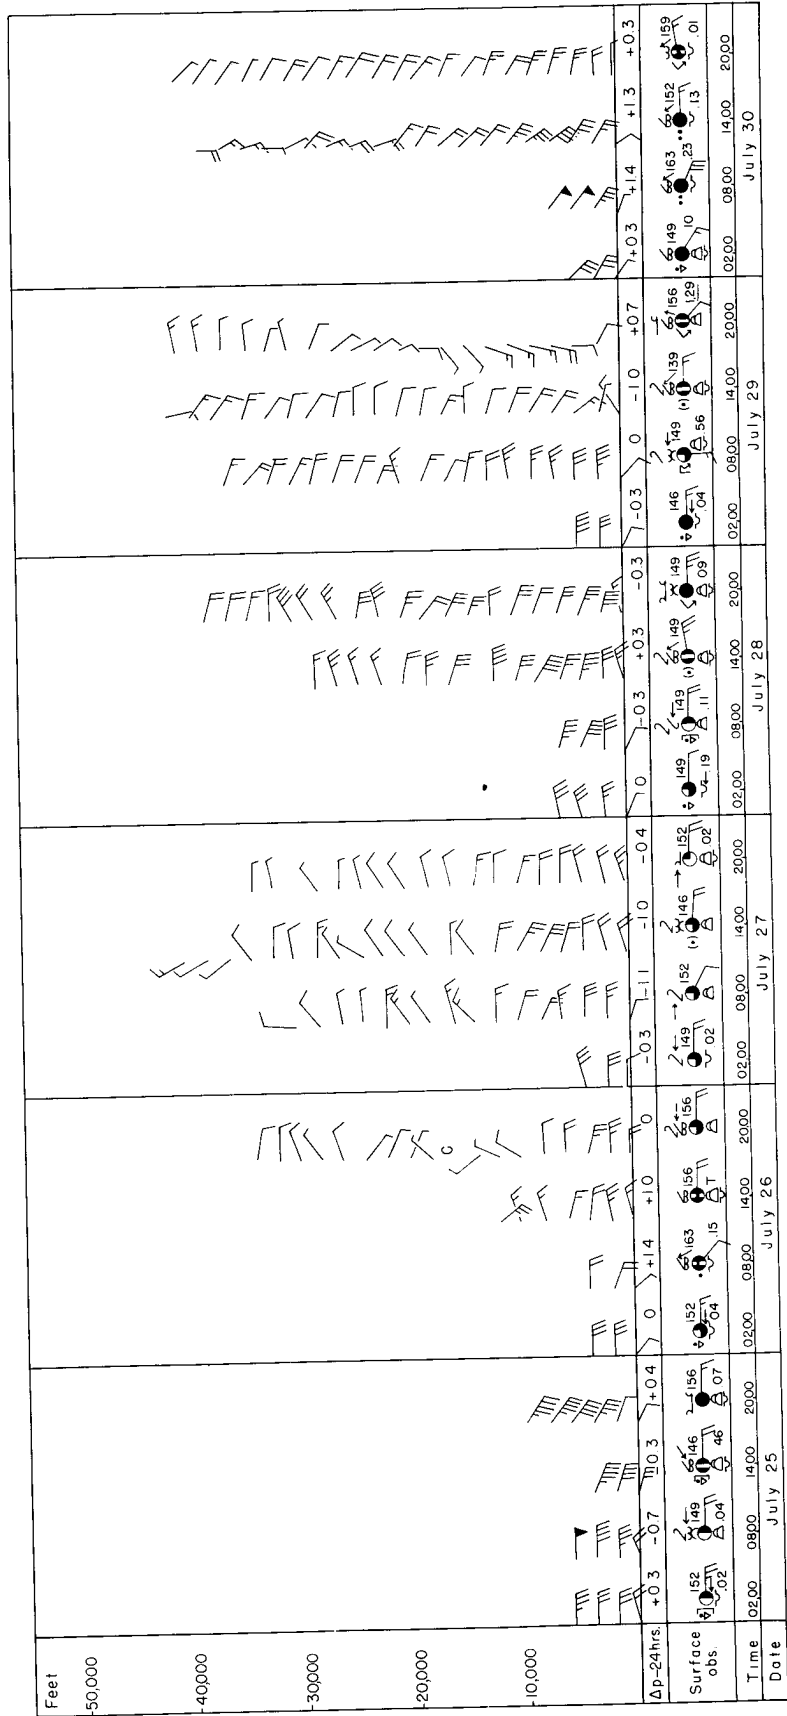 Feet
50,000
40,000
30,000
20,000
10,000
Δp-24hrs. +0 3 -0.7 -0.3 +0 4 0 +1 4 +1 0 0 -0 3 -1 1 -1 0 -0 4 0 -0 3 +0 3 -0.3 -0 3 0 -1 0 +0 7 +0 3 +1.4 +1.3 +0.3
Surface obs.
152 149 146 156 152 163 156 156 149 152 146 152 149 149 149 149 146 149 139 156 149 163 152 159
.02 .04 46 07 .04 .15 T .02 .02 19 .11 09 .04 .56 1.29 10 .23 .13 .01
Time 02,00 08,00 14,00 20,00 02,00 08,00 14,00 20,00 02,00 08,00 14,00 20,00 02,00 08,00 14,00 20,00 02,00 08,00 14,00 20,00 02,00 08,00 14,00 20,00
Date July 25 July 26 July 27 July 28 July 29 July 30